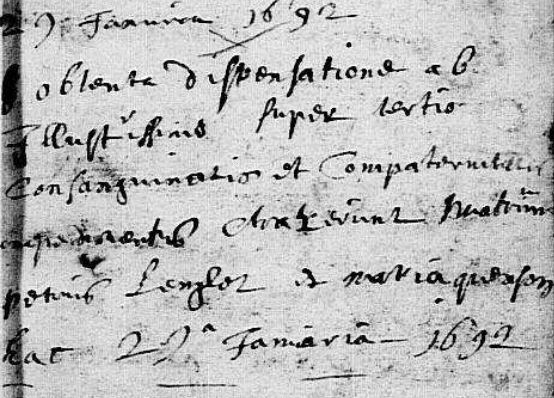 29 Januarii 1692
obtenta dispensatione ab
Illustrissimo super tertio
Consanguinitatis et Compaternitatis
impedimentis Contraxerunt Matrim
petrus Lenglet et maria quenson
hac 29a Januaria 1692